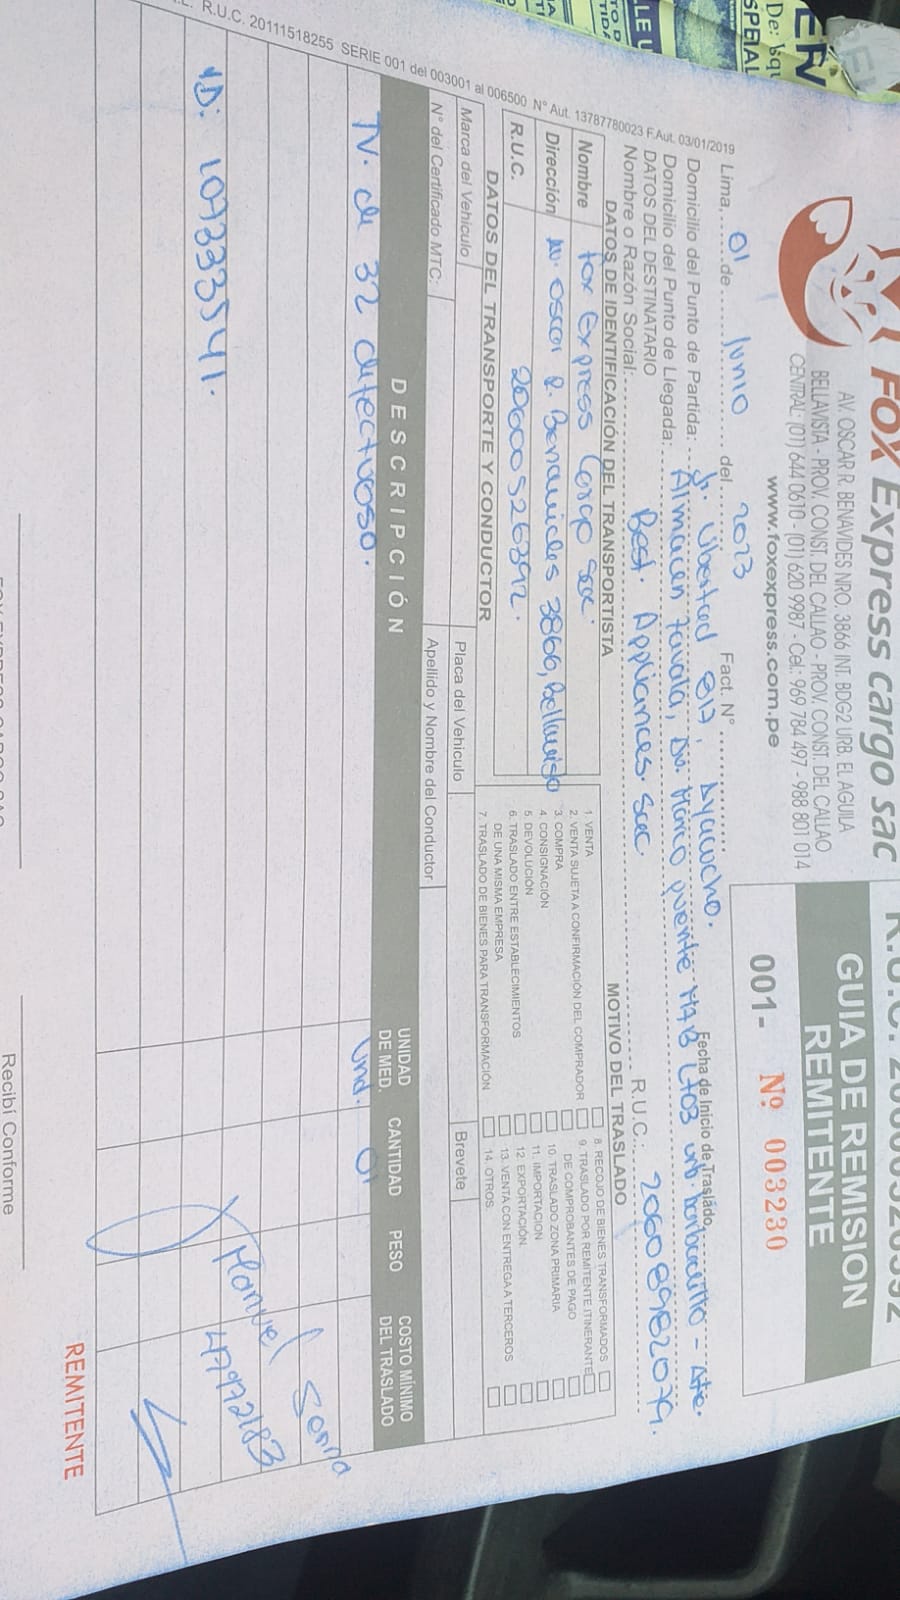 FOX Express cargo sac
AV. OSCAR R. BENAVIDES NRO. 3866 INT. BDG2 URB. EL AGUILA
BELLAVISTA - PROV. CONST. DEL CALLAO - PROV. CONST. DEL CALLAO
CENTRAL: (01) 644 0610 - (01) 620 9987 - Cel.: 969 784 497 - 988 801 014
www.foxexpress.com.pe
GUIA DE REMISION
REMITENTE
001- Nº 003230
Lima, 01 de Junio del 2023 Fact. N°
Fecha de Inicio de Traslado
Domicilio del Punto de Partida: Jr. Libertad 817, Ayacucho.
Domicilio del Punto de Llegada: Almacen Tavala, Av. Marco puente MzB Lt03 urb. - Ate.
DATOS DEL DESTINATARIO
Nombre o Razón Social: Best. Appliances. Sac. R.U.C.: 20608982079.
DATOS DE IDENTIFICACIÓN DEL TRANSPORTISTA
Nombre Fox Express Cargo Sac.
Dirección Av. Oscar R. Benavides 3866, Bellavista
R.U.C. 20600526392.
DATOS DEL TRANSPORTE Y CONDUCTOR
Marca del Vehiculo Placa del Vehiculo
N° del Certificado MTC: Apellido y Nombre del Conductor Brevete
MOTIVO DEL TRASLADO
1. VENTA
2. VENTA SUJETA A CONFIRMACIÓN DEL COMPRADOR
3. COMPRA
4. CONSIGNACIÓN
5. DEVOLUCIÓN
6. TRASLADO ENTRE ESTABLECIMIENTOS
DE UNA MISMA EMPRESA
7. TRASLADO DE BIENES PARA TRANSFORMACIÓN
8. RECOJO DE BIENES TRANSFORMADOS
9. TRASLADO POR REMITENTE ITINERANTE
DE COMPROBANTES DE PAGO
10. TRASLADO ZONA PRIMARIA
11. IMPORTACION
12. EXPORTACIÓN
13. VENTA CON ENTREGA A TERCEROS
14. OTROS
DESCRIPCIÓN UNIDAD DE MED. CANTIDAD PESO COSTO MÍNIMO DEL TRASLADO
TV. de 32 defectuoso. Und. 01
Manuel Serna
47972183
ID: 107333541.
R.U.C. 20111518255 SERIE 001 del 003001 al 006500 N° Aut. 13787780023 F.Aut. 03/01/2019
REMITENTE
Recibí Conforme